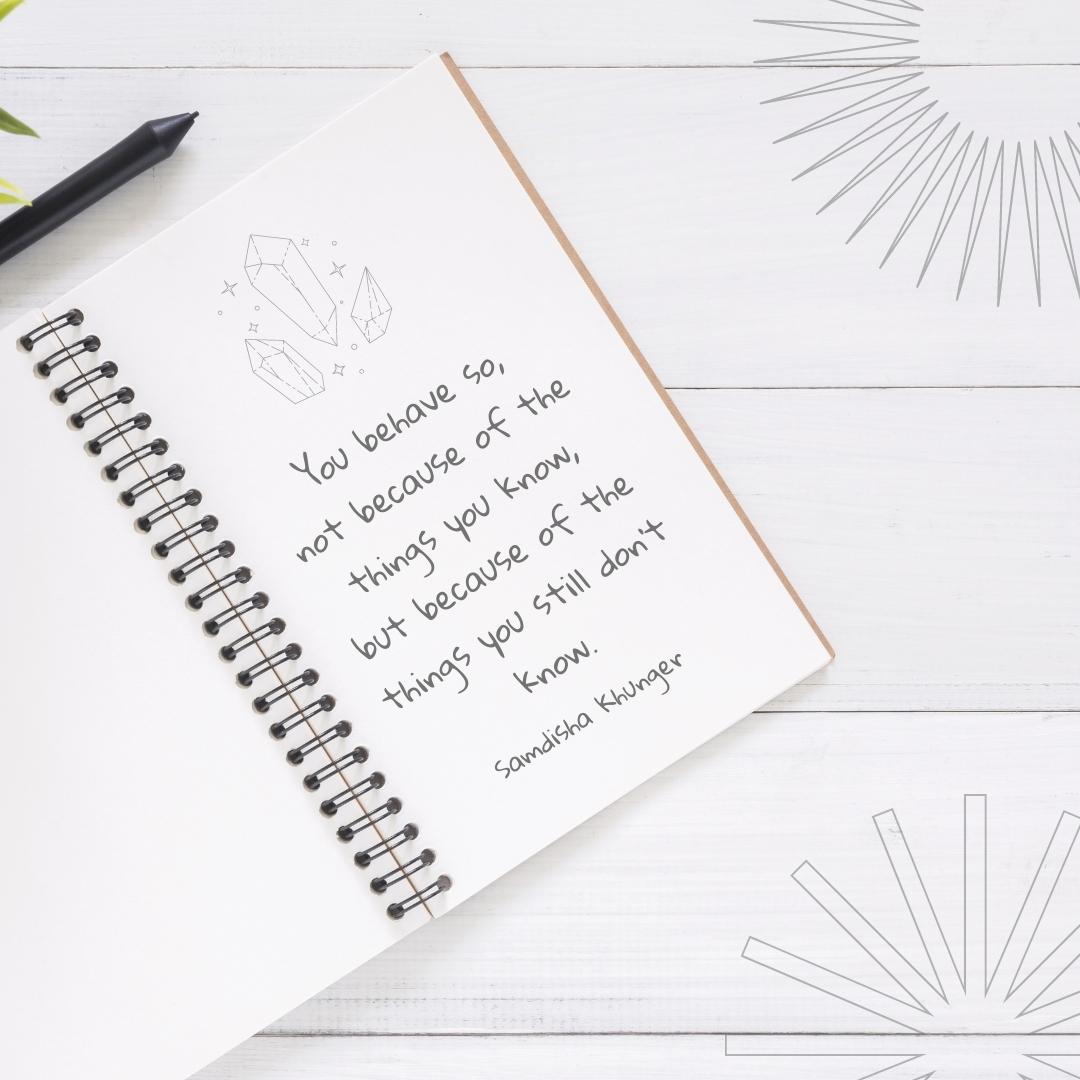 You behave so,
not because of the
things you know,
but because of the
things you still don't
know.
Samdisha Khunger